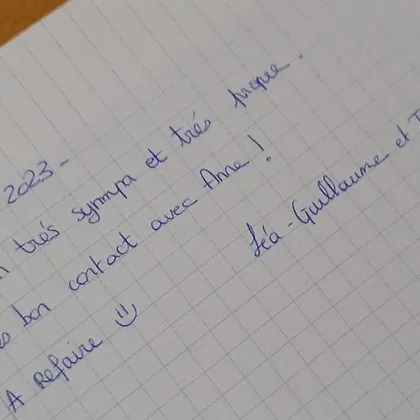 2023 -
très sympa et très
bon contact avec Anne !
A Refaire :) Léa - Guillaume et